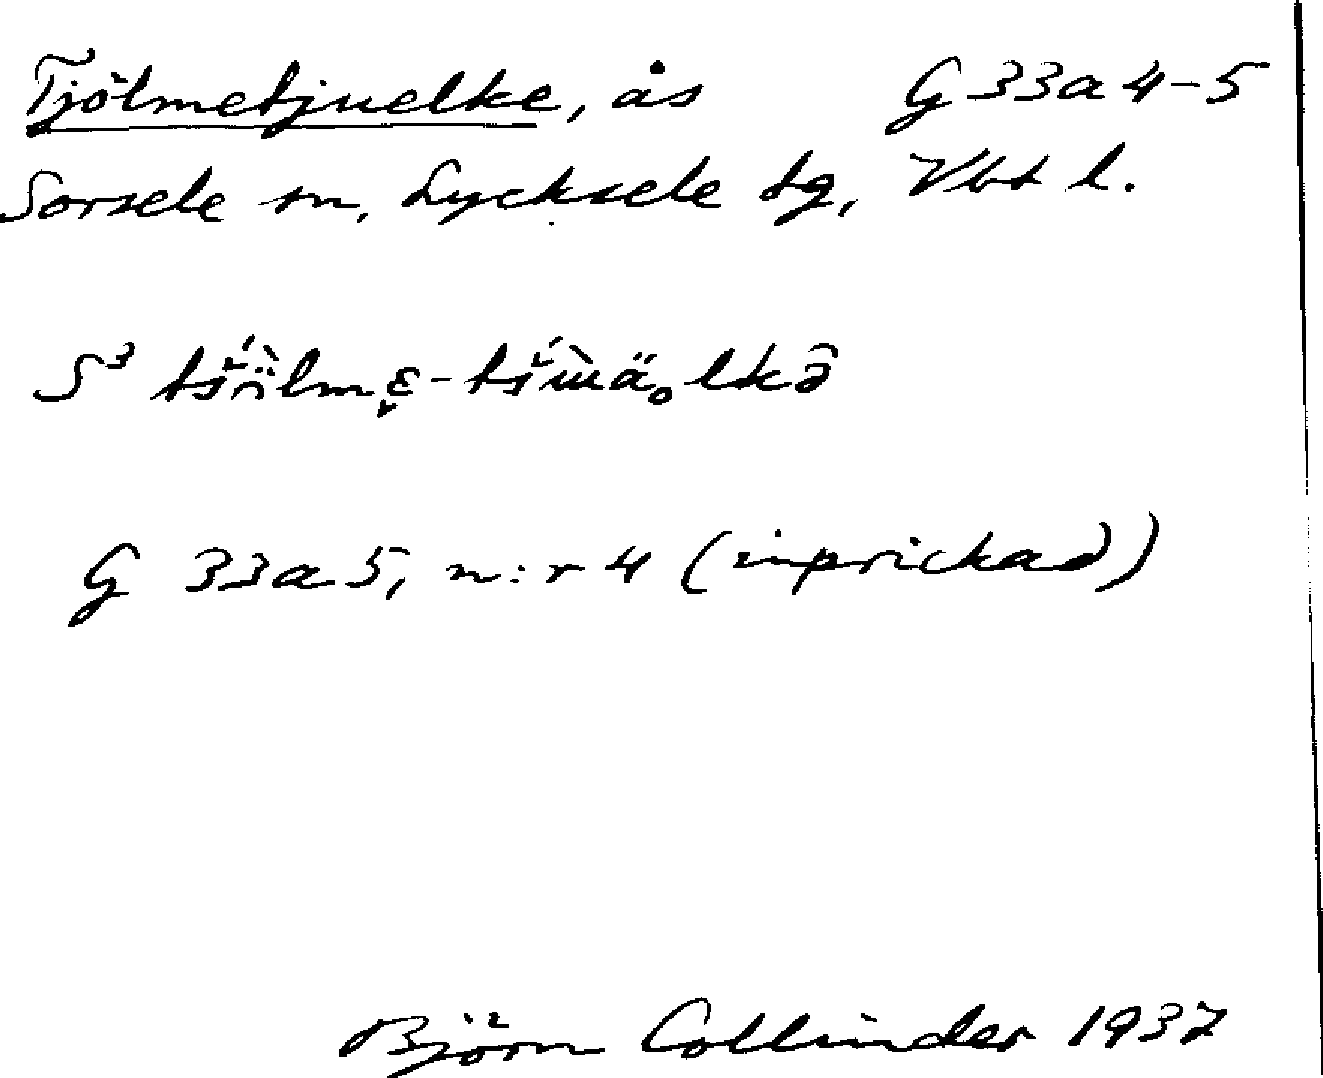 Tjölmetjuelke, ås G 33a 4-5
Sorsele sn, Lycksele tg, Vbt l.
S³
G 33a 5, n:r 4 (inprickad)
Björn Collinder 1937